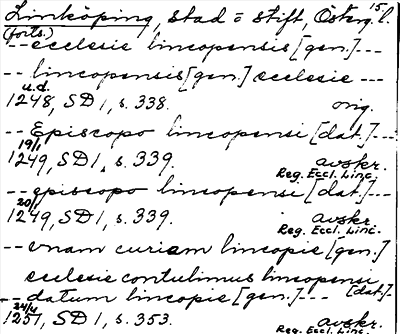 Linköping, stad o stift, Österg. l. 15
(forts.)
--- ecclesie lincopensis [gen.] ---
--- lincopensis [gen.] ecclesie ---
u.d.
1248, SD 1, s. 338. orig.
--- Episcopo lincopensi [dat.] ---
19/1
1249, SD 1, s. 339. avskr.
Reg. Eccl. Linc.
--- episcopo lincopensi [dat.] ---
20/1
1249, SD 1, s. 339. avskr.
Reg. Eccl. Linc.
--- vnam curiam lincopie [gen.]
ecclesie contulimus lincopensi [dat.] -
--- datum lincopie [gen.] ---
24/4
1251, SD 1, s. 353. avskr.
Reg. Eccl. Linc.